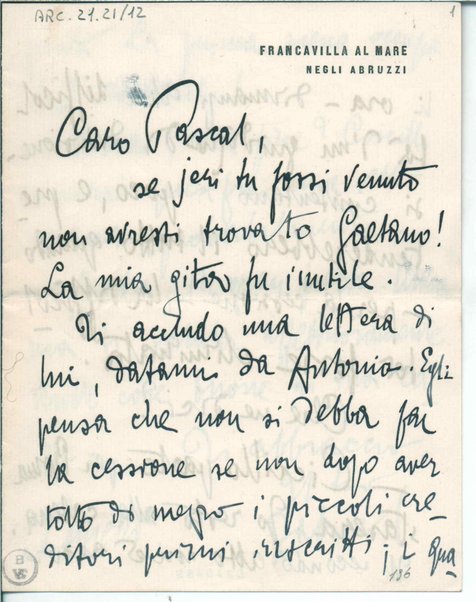 ARC. 21.21/12
1
FRANCAVILLA AL MARE
NEGLI ABRUZZI
Caro Pascal,
se jeri tu fossi venuto
non avresti trovato Gaetano!
La mia gita fu inutile.
Ti accludo una lettera di
lui, datami da Antonio. Egli
pensa che non si debba far
la cessione se non dopo aver
tolto di mezzo i piccoli cre-
ditori primi iscritti; e qua
136